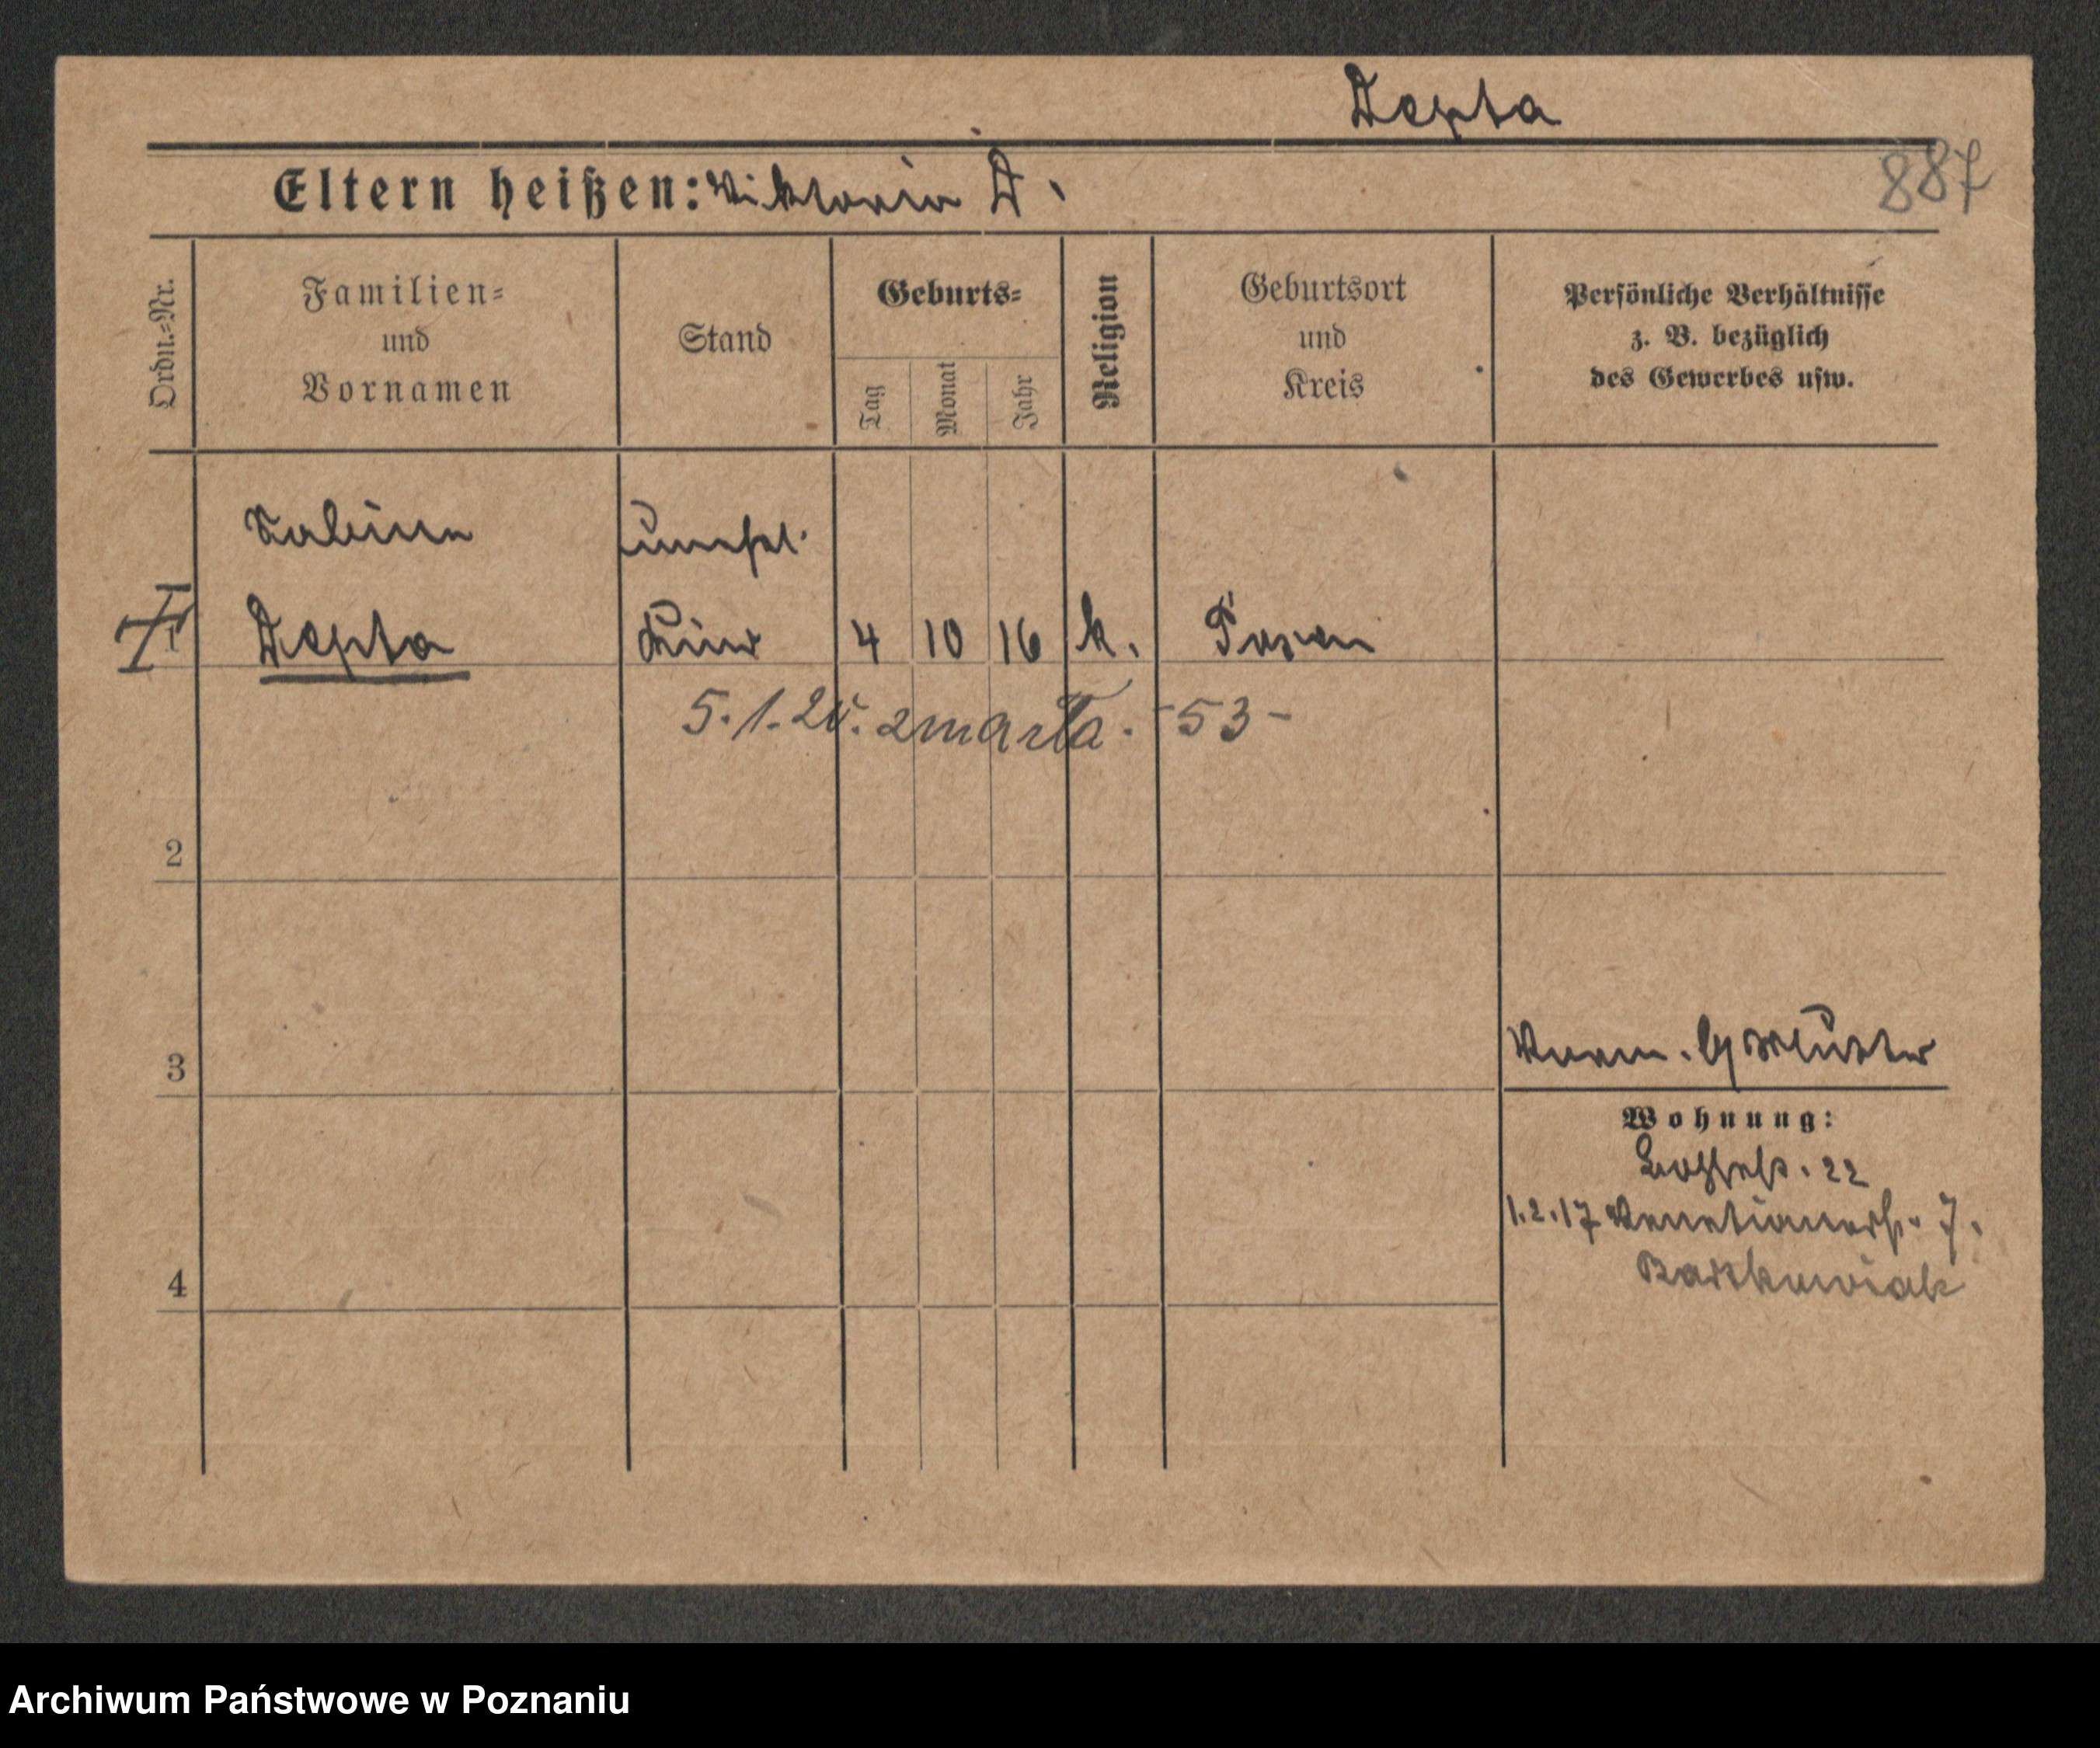 Depta
887
Eltern heißen: Viktoria D.
Ordn.-Nr.
Familien-
und
Vornamen
Stand
Geburts-
Tag
Monat
Jahr
Religion
Geburtsort
und
Kreis
Persönliche Verhältnisse
z. B. bezüglich
des Gewerbes usw.
Sabina unehel.
Depta Kind 4 10 16 k. Posen
5.1.21. zmarła. -53-
2
3
Wohnung:
22
1.2.17 Venetianerstr. 7.
Bartkowiak
4
Archiwum Państwowe w Poznaniu